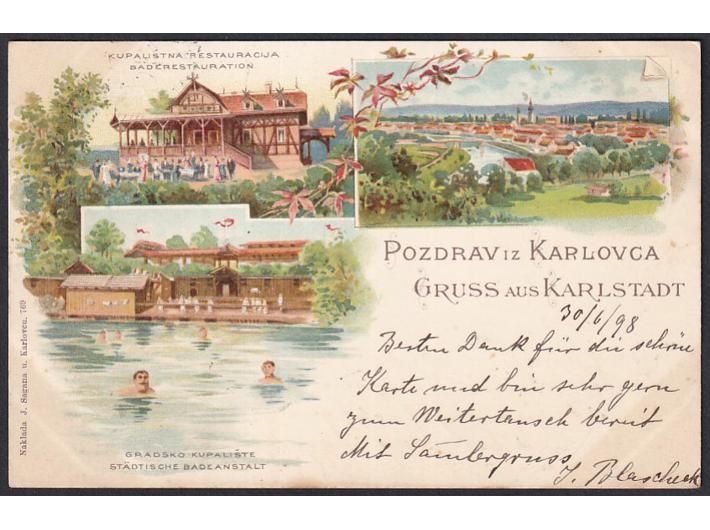 KUPALIŠTNA RESTAURACIJA
BADERESTAURATION
POZDRAV IZ KARLOVCA
GRUSS AUS KARLSTADT
30/6/98
Besten Dank für die schöne
Karte und bin sehr gern
zum Weitertausch bereit
Mit Samlergruss
J. Blascheck
GRADSKO KUPALIŠTE
STÄDTISCHE BADEANSTALT
Naklada J. Sagana u. Karlovcu. 769